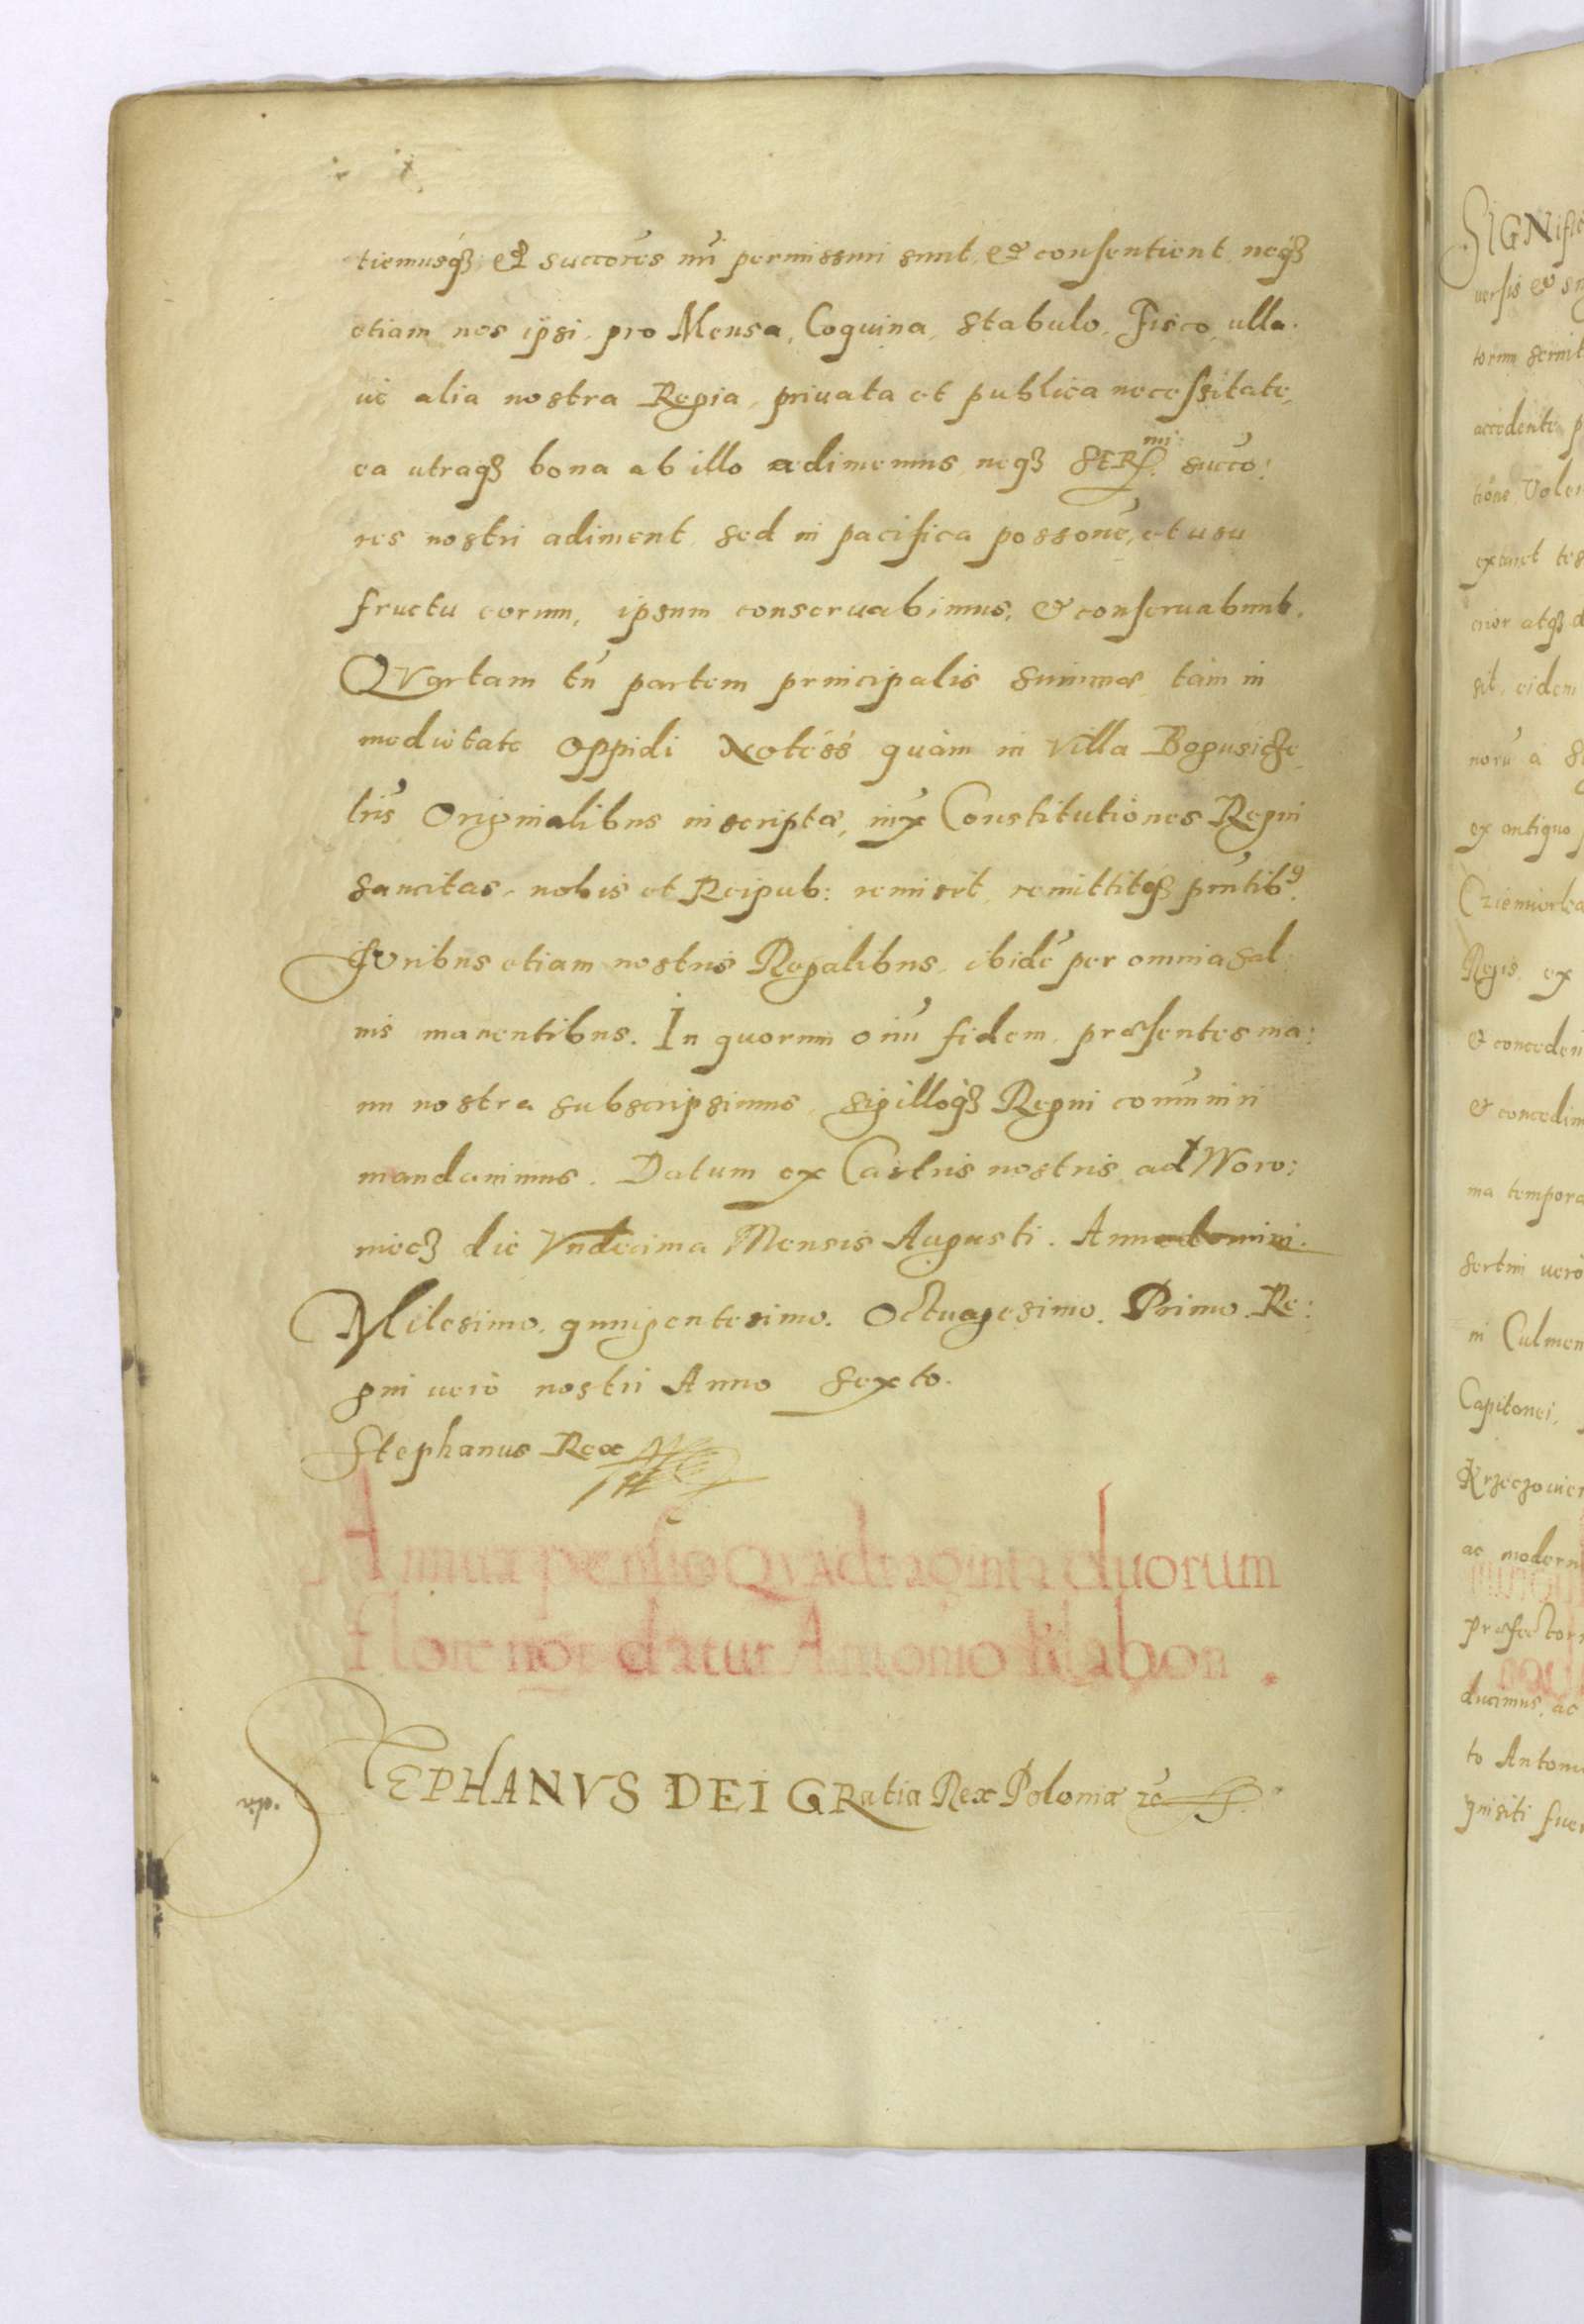 tiemusq́ꝫ et succores nr̃i permissuri sunt, et consentient neq́ꝫ
etiam nos ipsi, pro Mensa, Coquina, stabulo, Fisco, ulla
ue alia nostra Regia, priuata et publica necessitate,
ea utraqꝫ bona ab illo adimemus, neqꝫ SERmi: succo:
res nostri adiment, sed in pacifica possone, et usu
fructu eorum, ipsum conseruabimus, et conseruabunt.
QVartam tñ partem principalis summæ, tàm in
medietate oppidi Notéss quàm in Villa Bogusicze
lris Originalibus inscriptæ, iux Constitutiones Regni
sancitas, nobis et Reipub: remisit, remittitqꝫ pñtibꝰ.
Iuribus etiam nostris Regalibus, ibidẽ per omnia sal
uis manentibus. In quorum oiũ fidem, præsentes ma:
nu nostra subscripsimus, sigilloq́ꝫ Regni com̃uniri
mandauimus. Datum ex Castris nostris ad Woro:
niecꝫ die Vndecima Mensis Augusti. Anno domini.
Milesimo. quingentesimo. Octuagesimo. Primo. Re:
gni uerò nostri Anno sexto.
Stephanus Rex
Annua pensio QVAdraginta duorum
florenor datur Antonio Klabon.
STEPHANVS DEI GRatia Rex Poloniæ ꝛc̃
SIGNific
uersis et
accedente p
Volen
atqꝫ d
sit, eidem
norũ à
ex antiquo
Regis, ex
et conceden
et concedim
ma tempora
sertim uerò
in Culmen
Capitanei,
ac modern
ducimus, ac
to Antoni
quisiti fuer